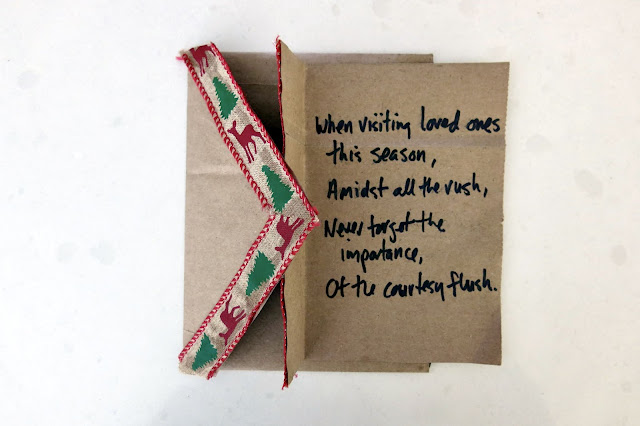 When visiting loved ones
this season,
Amidst all the rush,
Never forget the
importance,
Of the courtesy flush.